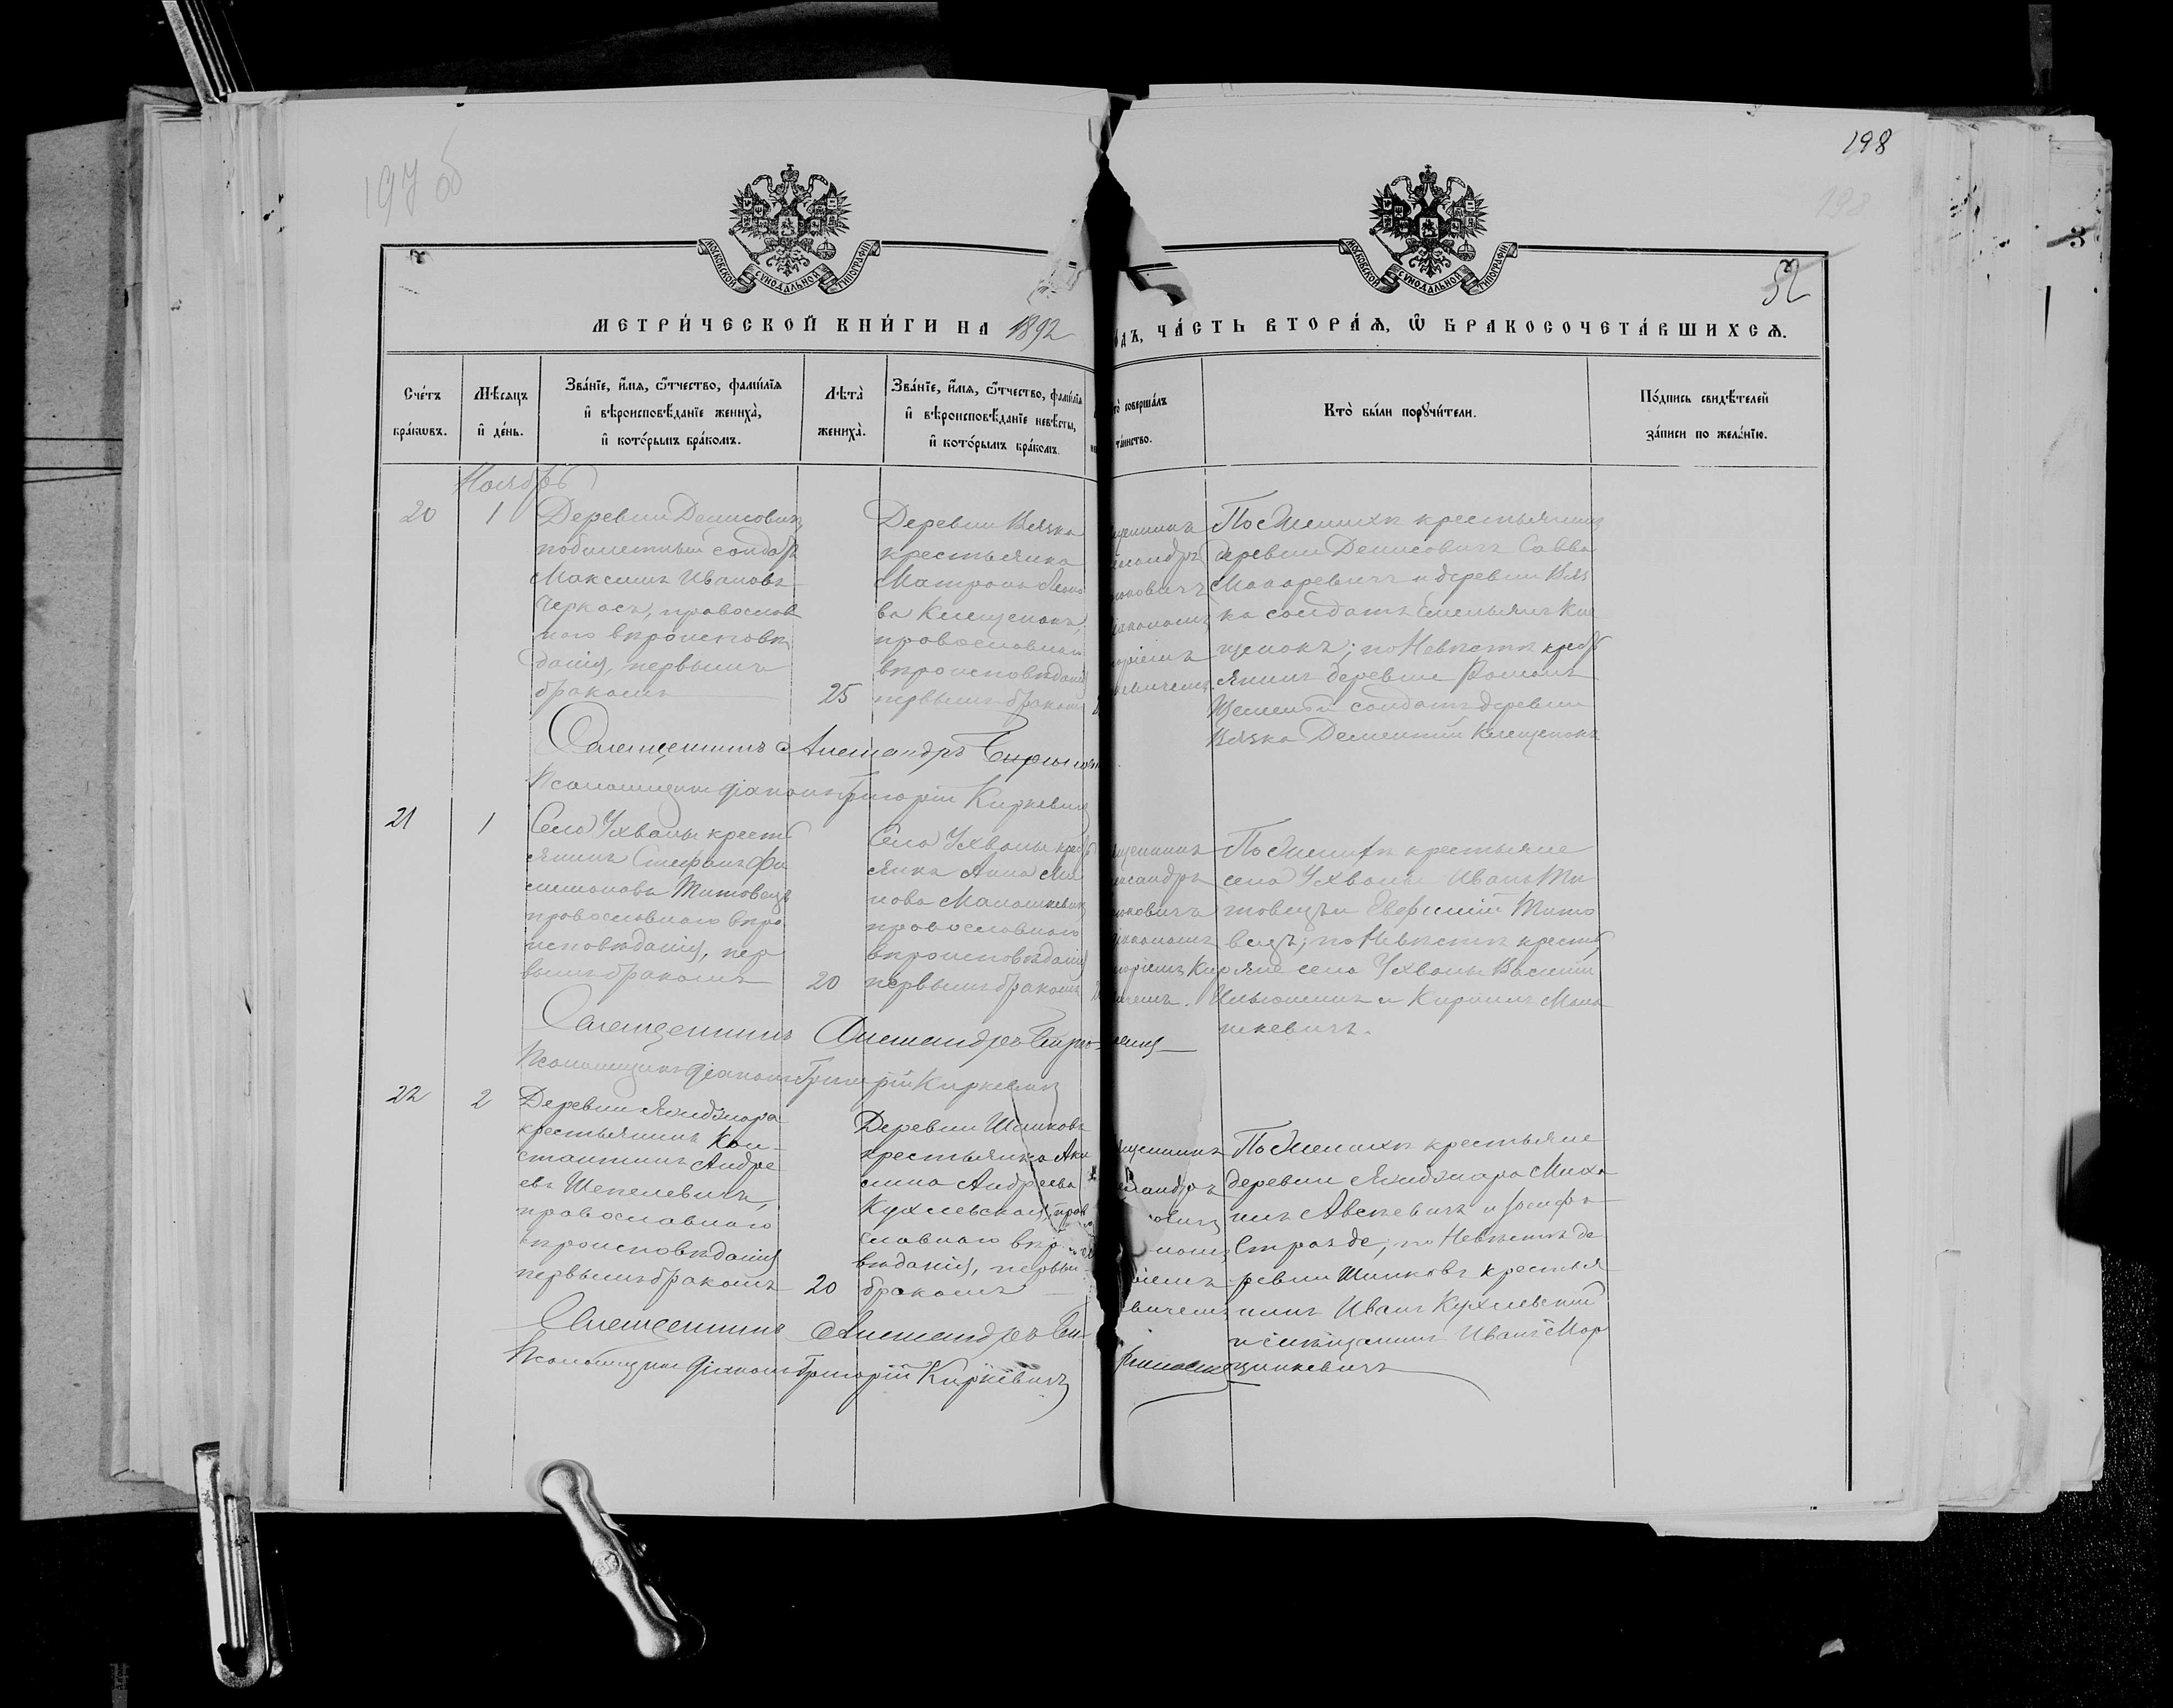 197 об
198
198
52
МОСКОВСКОЙ СУНОДАЛЬНОЙ ТИПОГРАФІИ
МОСКОВСКОЙ СУНОДАЛЬНОЙ ТИПОГРАФІИ
МЕТРИ́ЧЕСКОЙ КНИ́ГИ НА 1892
ОДЪ, ЧА́СТЬ ВТОРА́Ѧ, Ѿ БРАКОСОЧЕТА́ВШИХСѦ.
Сче́тъ
бра́кѡвъ.
Мѣ́сяцъ
и҆ де́нь.
Зва́нїе, и҆́мѧ, ѻ҆́тчество, фами́лїѧ
и҆ вѣроисповѣ́данїе жениха̀,
и҆ кото́рымъ бра́комъ.
Лѣта̀
жениха̀.
Зва́нїе, и҆́мѧ, ѻ҆́тчество, фами́лїѧ
и҆ вѣроисповѣ́данїе невѣ́сты,
и҆ кото́рымъ бра́комъ.
то̀ соверша́лъ
та́инство.
Кто̀ бы́ли порꙋчи́тели.
По́дпись свидѣ́телей
за́писи по жела́нїю.
Ноябрь
20
1
Деревни Денисовичъ
побилетный солдатъ
Максимъ Ивановъ
Черкасъ, православ
наго вѣроисповѣ
данія, первымъ
бракомъ
25
Деревни Вязка
крестьянка
Матрона
ва Клещенокъ,
православнаго
вѣроисповѣданія
первымъ бракомъ
ященникъ
лександръ
юковичъ
діакономъ
горіемъ
кевичемъ.
По Женихѣ крестьянинъ
деревни Денисовичъ Савва
Макаревичъ и деревни Вяз
ка солдатъ Емельянъ Кле
щенокъ; по Невѣстѣ крест
янинъ деревни Романъ
солдатъ деревни
Вязка Дементій Клещенокъ
Священникъ Александръ
Псаломщикъ діаконъ Григорій Киркевичъ
21
1
Села Ухвалы кресть
янинъ Стефанъ Фи
лимоновъ Титовецъ
православнаго вѣро
исповѣданія, пер
вымъ бракомъ
20
Села Ухвалы крест
янка Анна
нова Малашкевичъ
православнаго
вѣроисповѣданія
первымъ бракомъ
ященникъ
лександръ
юковичъ
діакономъ
горіемъ Кир
вичемъ.
По Женихѣ крестьяне
села Ухвалы Иванъ Ти
товецъ и Евфимій Тито
вецъ; по Невѣстѣ кресть
яне села Ухвалы Василій
Ильюшинъ и Кириллъ Мала
шкевичъ.
Священникъ Александръ
Псаломщикъ діаконъ Григорій Киркевичъ
22
2
Деревни
крестьянинъ Кон-
стантинъ Андре
евъ Шепелевичъ,
православнаго
вѣроисповѣданія
первымъ бракомъ
20
Деревни Шинковъ
крестьянка Аку
лина Андреева
Кухлевская, прав
славнаго вѣро
вѣданія, первым
бракомъ
ященникъ
ександръ
овичъ
номъ
ріемъ
вичемъ
По Женихѣ крестьяне
деревни Миха
илъ Авсѣевичъ и Іосифъ
по Невѣстѣ де
ревни Шинковъ крестья
нинъ Иванъ Кухлевскій
и мѣщанинъ Иванъ Мар
цинкевичъ
Священникъ Александръ
Псаломщикъ діаконъ Григорій Киркевичъ